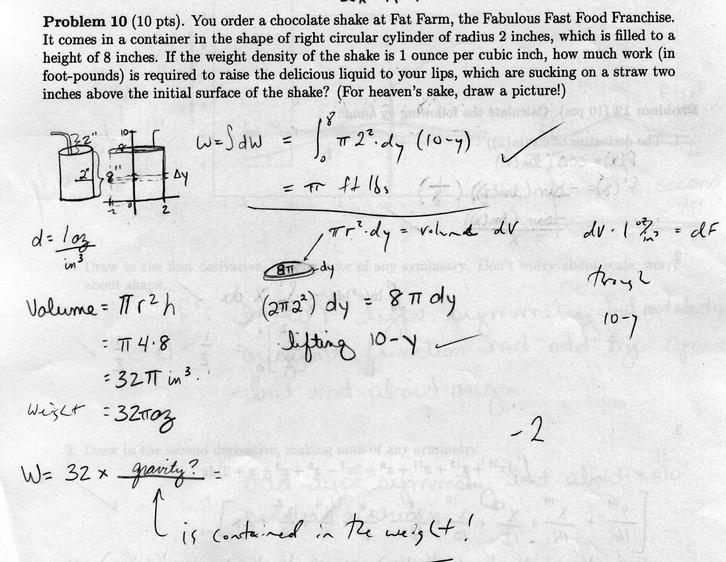 Problem 10 (10 pts). You order a chocolate shake at Fat Farm, the Fabulous Fast Food Franchise.
It comes in a container in the shape of right circular cylinder of radius 2 inches, which is filled to a
height of 8 inches. If the weight density of the shake is 1 ounce per cubic inch, how much work (in
foot-pounds) is required to raise the delicious liquid to your lips, which are sucking on a straw two
inches above the initial surface of the shake? (For heaven's sake, draw a picture!)
2" 10 8 W = ∫dW = ∫₀⁸ π 2²·dy (10-y)
2" 8" Δy = π ft lbs
-2 0 2
πr²·dy = volume dV dV · 1 oz/in³ = dF
d = 1 oz/in³ 8π dy through
Volume = πr²h (2π2²) dy = 8π dy 10-y
= π4·8 lifting 10-y
= 32π in³.
Weight = 32π oz
-2
W = 32 × gravity? =
is contained in the weight!